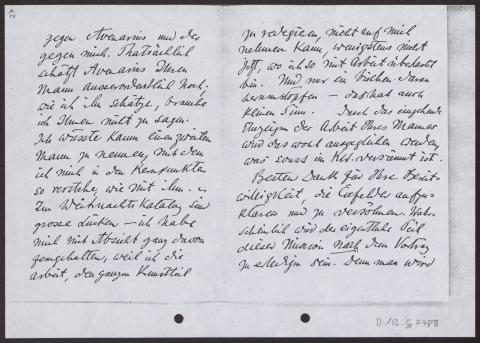 gegen Avenarius und der
gegen mich. Thatsächlich
schätzt Avenarius Ihren
Mann ausserordentlich hoch.
wie ich ihn schätze, brauche
ich Ihnen nicht zu sagen.
Ich wüsste kaum einen zweiten
Mann zu nennen, mit dem
ich mich in den Kernpunkten
so verstehe, wie mit ihm.
Im Weihnachtskatalog sind
grosse Lücken – ich habe
mich mit Absicht ganz davon
ferngehalten, weil ich die
Arbeit, den ganzen Kunstteil
zu redigieren, nicht auf mich
nehmen kann, wenigstens nicht
jetzt, wo ich so mit Arbeit überlastet
bin. Und nur ein bischen daran
herumstopfen – das hat auch
keinen Sinn. Durch das eingehende
Anzeigen der Arbeit Ihres Mannes
wird das wohl ausgeglichen werden,
was sonst im versäumt ist.
Besten Dank für Ihre Bereit-
willigkeit, die Elberfelder aufzu-
klären und zu versöhnen. Wahr-
scheinlich wird der eigentliche Teil
dieser Mission nach dem Vortrag
zu erledigen sein. Denn man wird
D.10.5748B